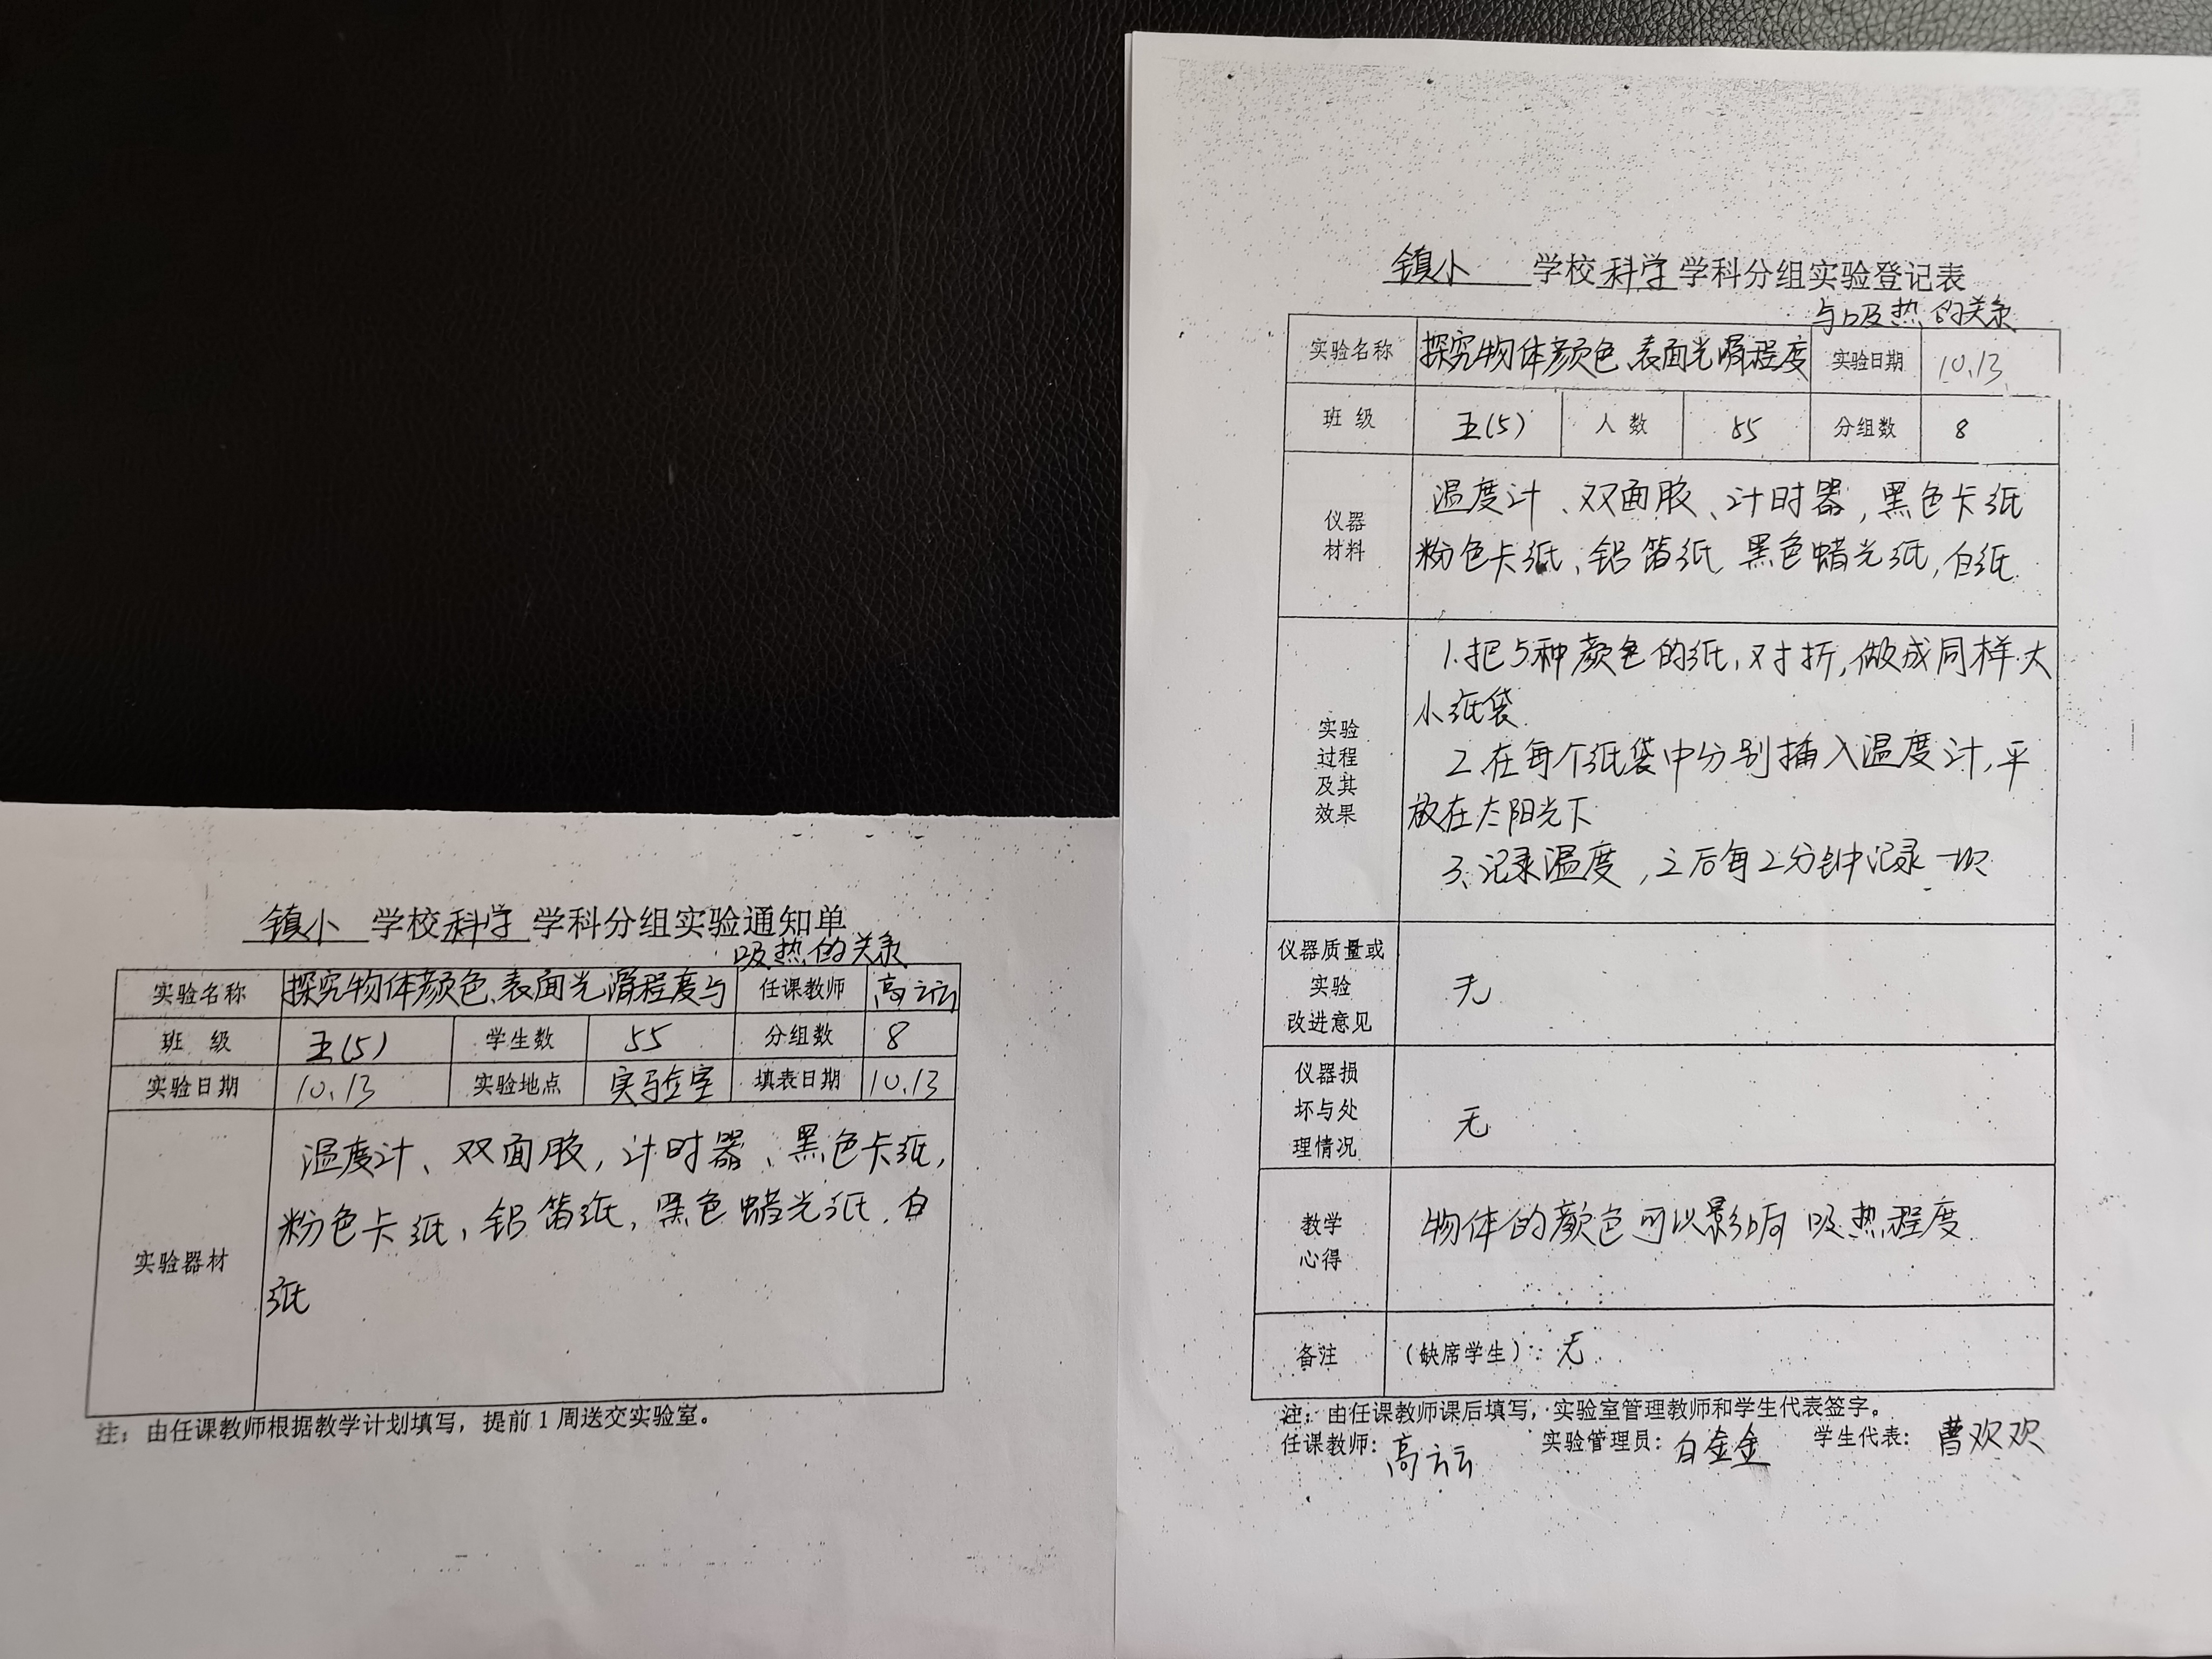 镇小 学校 科学 学科分组实验通知单
吸热的关系
实验名称 探究物体颜色、表面光滑程度与 任课教师 高云
班 级 五(5) 学生数 55 分组数 8
实验日期 10.13 实验地点 实验室 填表日期 10.13
实验器材
温度计、双面胶，计时器、黑色卡纸，
粉色卡纸，铝箔纸，黑色蜡光纸，白
纸
注：由任课教师根据教学计划填写，提前1周送交实验室。
镇小 学校 科学 学科分组实验登记表
与吸热的关系
实验名称 探究物体颜色、表面光滑程度 实验日期 10.13
班 级 五(5) 人 数 55 分组数 8
仪器
材料
温度计、双面胶、计时器，黑色卡纸
粉色卡纸、铝箔纸 黑色蜡光纸，白纸
实验
过程
及其
效果
1.把5种颜色的纸，对折，做成同样大
小纸袋
2.在每个纸袋中分别插入温度计，平
放在太阳光下
3、记录温度，之后每2分钟记录一次
仪器质量或
实验
改进意见
无
仪器损
坏与处
理情况
无
教学
心得
物体的颜色可以影响吸热程度
备注 （缺席学生）：无
注：由任课教师课后填写，实验室管理教师和学生代表签字。
任课教师：高云 实验管理员：白金金 学生代表：曹欢欢